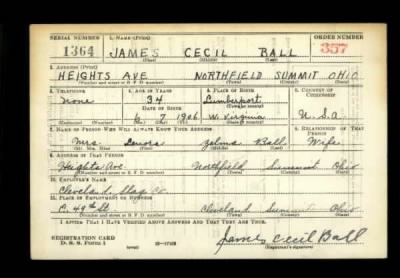 SERIAL NUMBER 1. NAME (Print) ORDER NUMBER
1364 JAMES CECIL BALL 357
(First) (Middle) (Last)
2. ADDRESS (Print)
HEIGHTS AVE NORTHFIELD SUMMIT OHIO
(Number and street or R. F. D. number) (Town) (County) (State)
3. TELEPHONE 4. AGE IN YEARS 5. PLACE OF BIRTH 6. COUNTRY OF CITIZENSHIP
None 34 Lumberport
DATE OF BIRTH (Town or county)
6 7 1906 W. Virginia U.S.A
(Exchange) (Number) (Mo.) (Day) (Yr.) (State or country)
7. NAME OF PERSON WHO WILL ALWAYS KNOW YOUR ADDRESS 8. RELATIONSHIP OF THAT PERSON
Mrs. Zelma Ball Wife
(Mr., Mrs., Miss) (First) (Middle) (Last)
9. ADDRESS OF THAT PERSON
Heights Ave Northfield Summit Ohio
(Number and street or R. F. D. number) (Town) (County) (State)
10. EMPLOYER'S NAME
Cleveland Co.
11. PLACE OF EMPLOYMENT OR BUSINESS
E. 49th St. Cleveland Ohio
(Number and street or R. F. D. number) (Town) (County) (State)
I AFFIRM THAT I HAVE VERIFIED ABOVE ANSWERS AND THAT THEY ARE TRUE.
REGISTRATION CARD
D. S. S. Form 1 James Cecil Ball
(Registrant's signature)